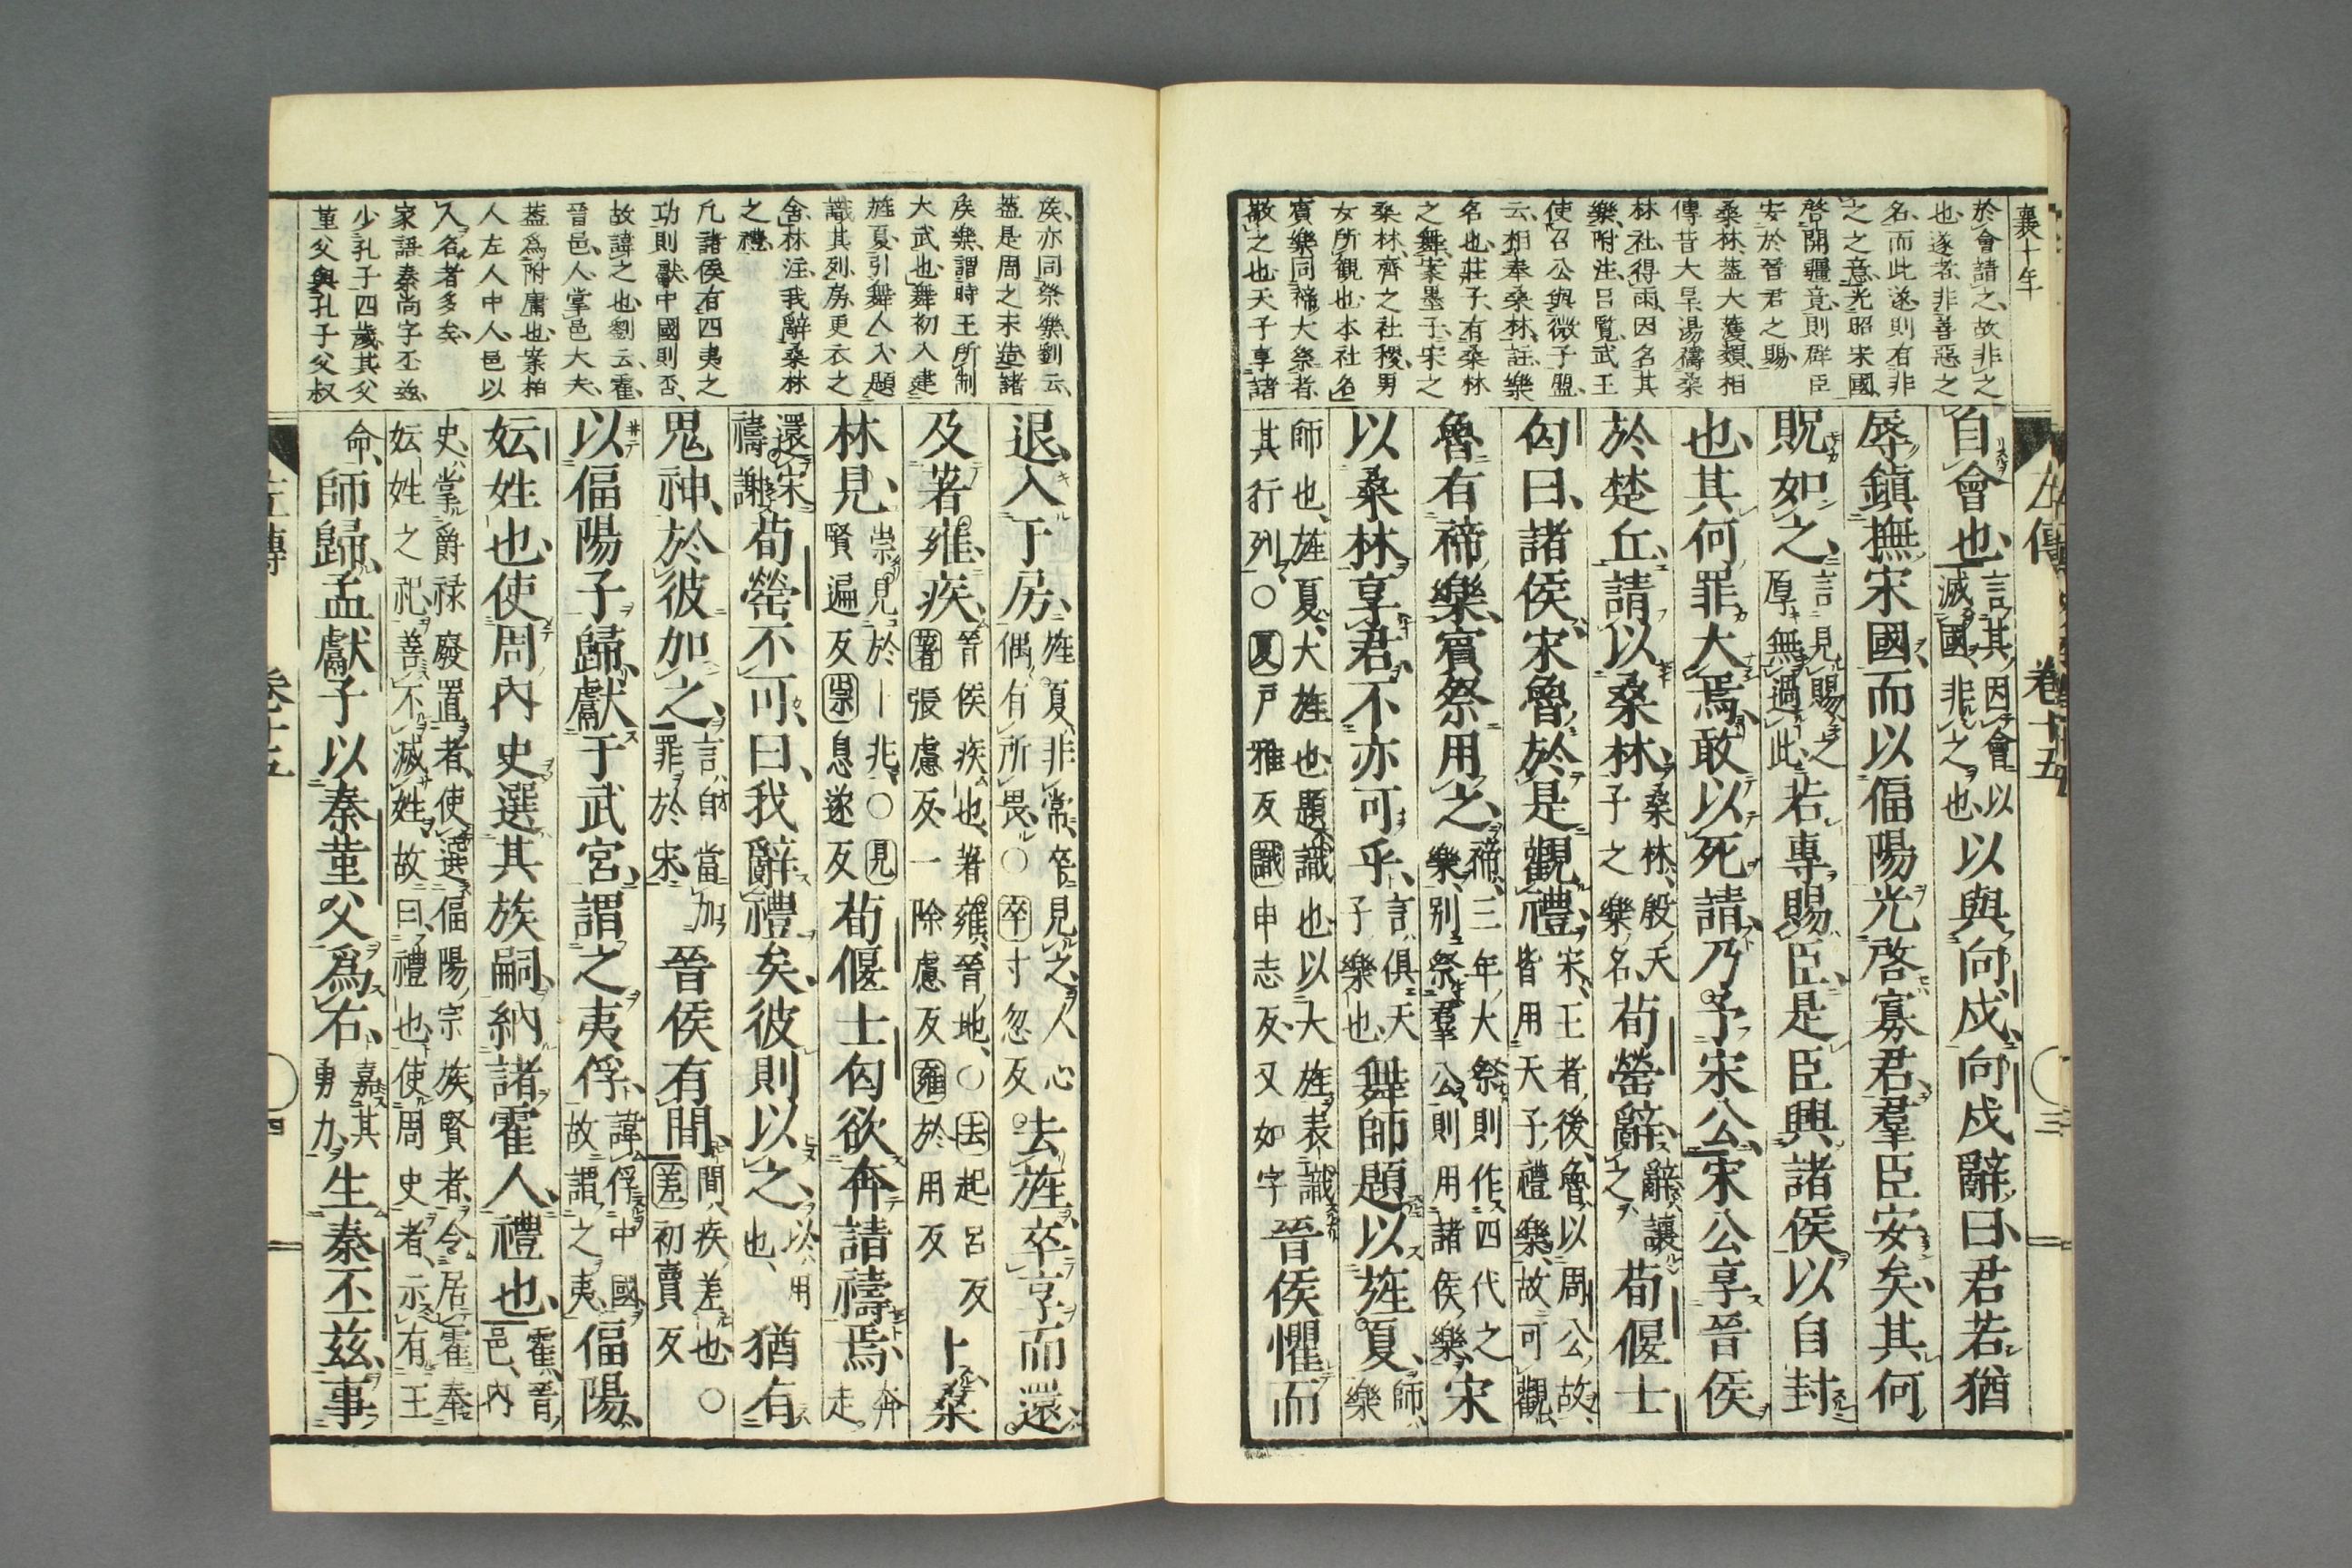 襄十年
於會請之故非之
也遂者非善惡之
名而此遂則有非
之之意光昭宋國
啓開疆竟則群臣
安於晉君之賜
桑林蓋大蒦類相
傳昔大旱湯禱桑
林社得雨因名其
樂附注呂覽武王
使召公與微子盟
云相奉桑林註樂
名也莊子有桑林
之舞案墨子宋之
桑林齊之社稷男
女所觀也本社名
賓樂同禘大樂者
敬之也天子享諸
左傳 卷十五 三
自會也言其因會以滅國非之也以與向戌向戌辭曰君若猶
辱鎮撫宋國而以偪陽光啓寡君羣臣安矣其何
貺如之言見賜之厚無過此若專賜臣是臣興諸侯以自封
也其何罪大焉敢以死請乃予宋公宋公享晉侯
於楚丘請以桑林桑林殷天子之樂名荀罃辭辭讓之荀偃士
匃曰諸侯宋魯於是觀禮宋王者後魯以周公故皆用天子禮樂故可觀
魯有禘樂賓祭用之禘三年大祭則作四代之樂別祭羣公則用諸侯樂宋
以桑林享君不亦可乎言俱天子樂也舞師題以旌夏師樂
師也旌夏大旌也題識也以大旌表識其行列○夏戸雅反識申志反又如字晉侯懼而
侯亦同祭樂劉云
蓋是周之末造諸
侯樂謂時王所制
大武也舞初入建
旌夏引舞人入題
識其列房更衣之
舍林注我辭桑林
之禮
凡諸侯有四夷之
功則獻中國則否
故諱之也劉云霍
晉邑人掌邑大夫
蓋爲附庸也案柏
人左人中人邑以
人名者多矣
家語秦尚字丕兹
少孔子四歲其父
堇父與孔子父叔
退入于房旌夏非常卒見之人心偶有所畏○卒寸忽反去旌卒享而還
及著雍疾晉侯疾也著雍晉地○去起呂反著張慮反一除慮反雍於用反卜桑
林見祟見於卜兆○見賢遍反祟息遂反荀偃士匃欲奔請禱焉奔走
還宋禱謝荀罃不可曰我辭禮矣彼則以之以用也猶有
鬼神於彼加之言自當加罪於宋晉侯有間間疾差也○差初賣反
以偪陽子歸獻于武宮謂之夷俘諱俘中國故謂之夷偪陽
妘姓也使周內史選其族嗣納諸霍人禮也霍晉邑內
史掌爵祿廢置者使選偪陽宗族賢者令居霍奉妘姓之祀善不滅姓故曰禮也使周史者示有王
命師歸孟獻子以秦堇父爲右嘉其勇力生秦丕兹事
左傳 卷十五 四